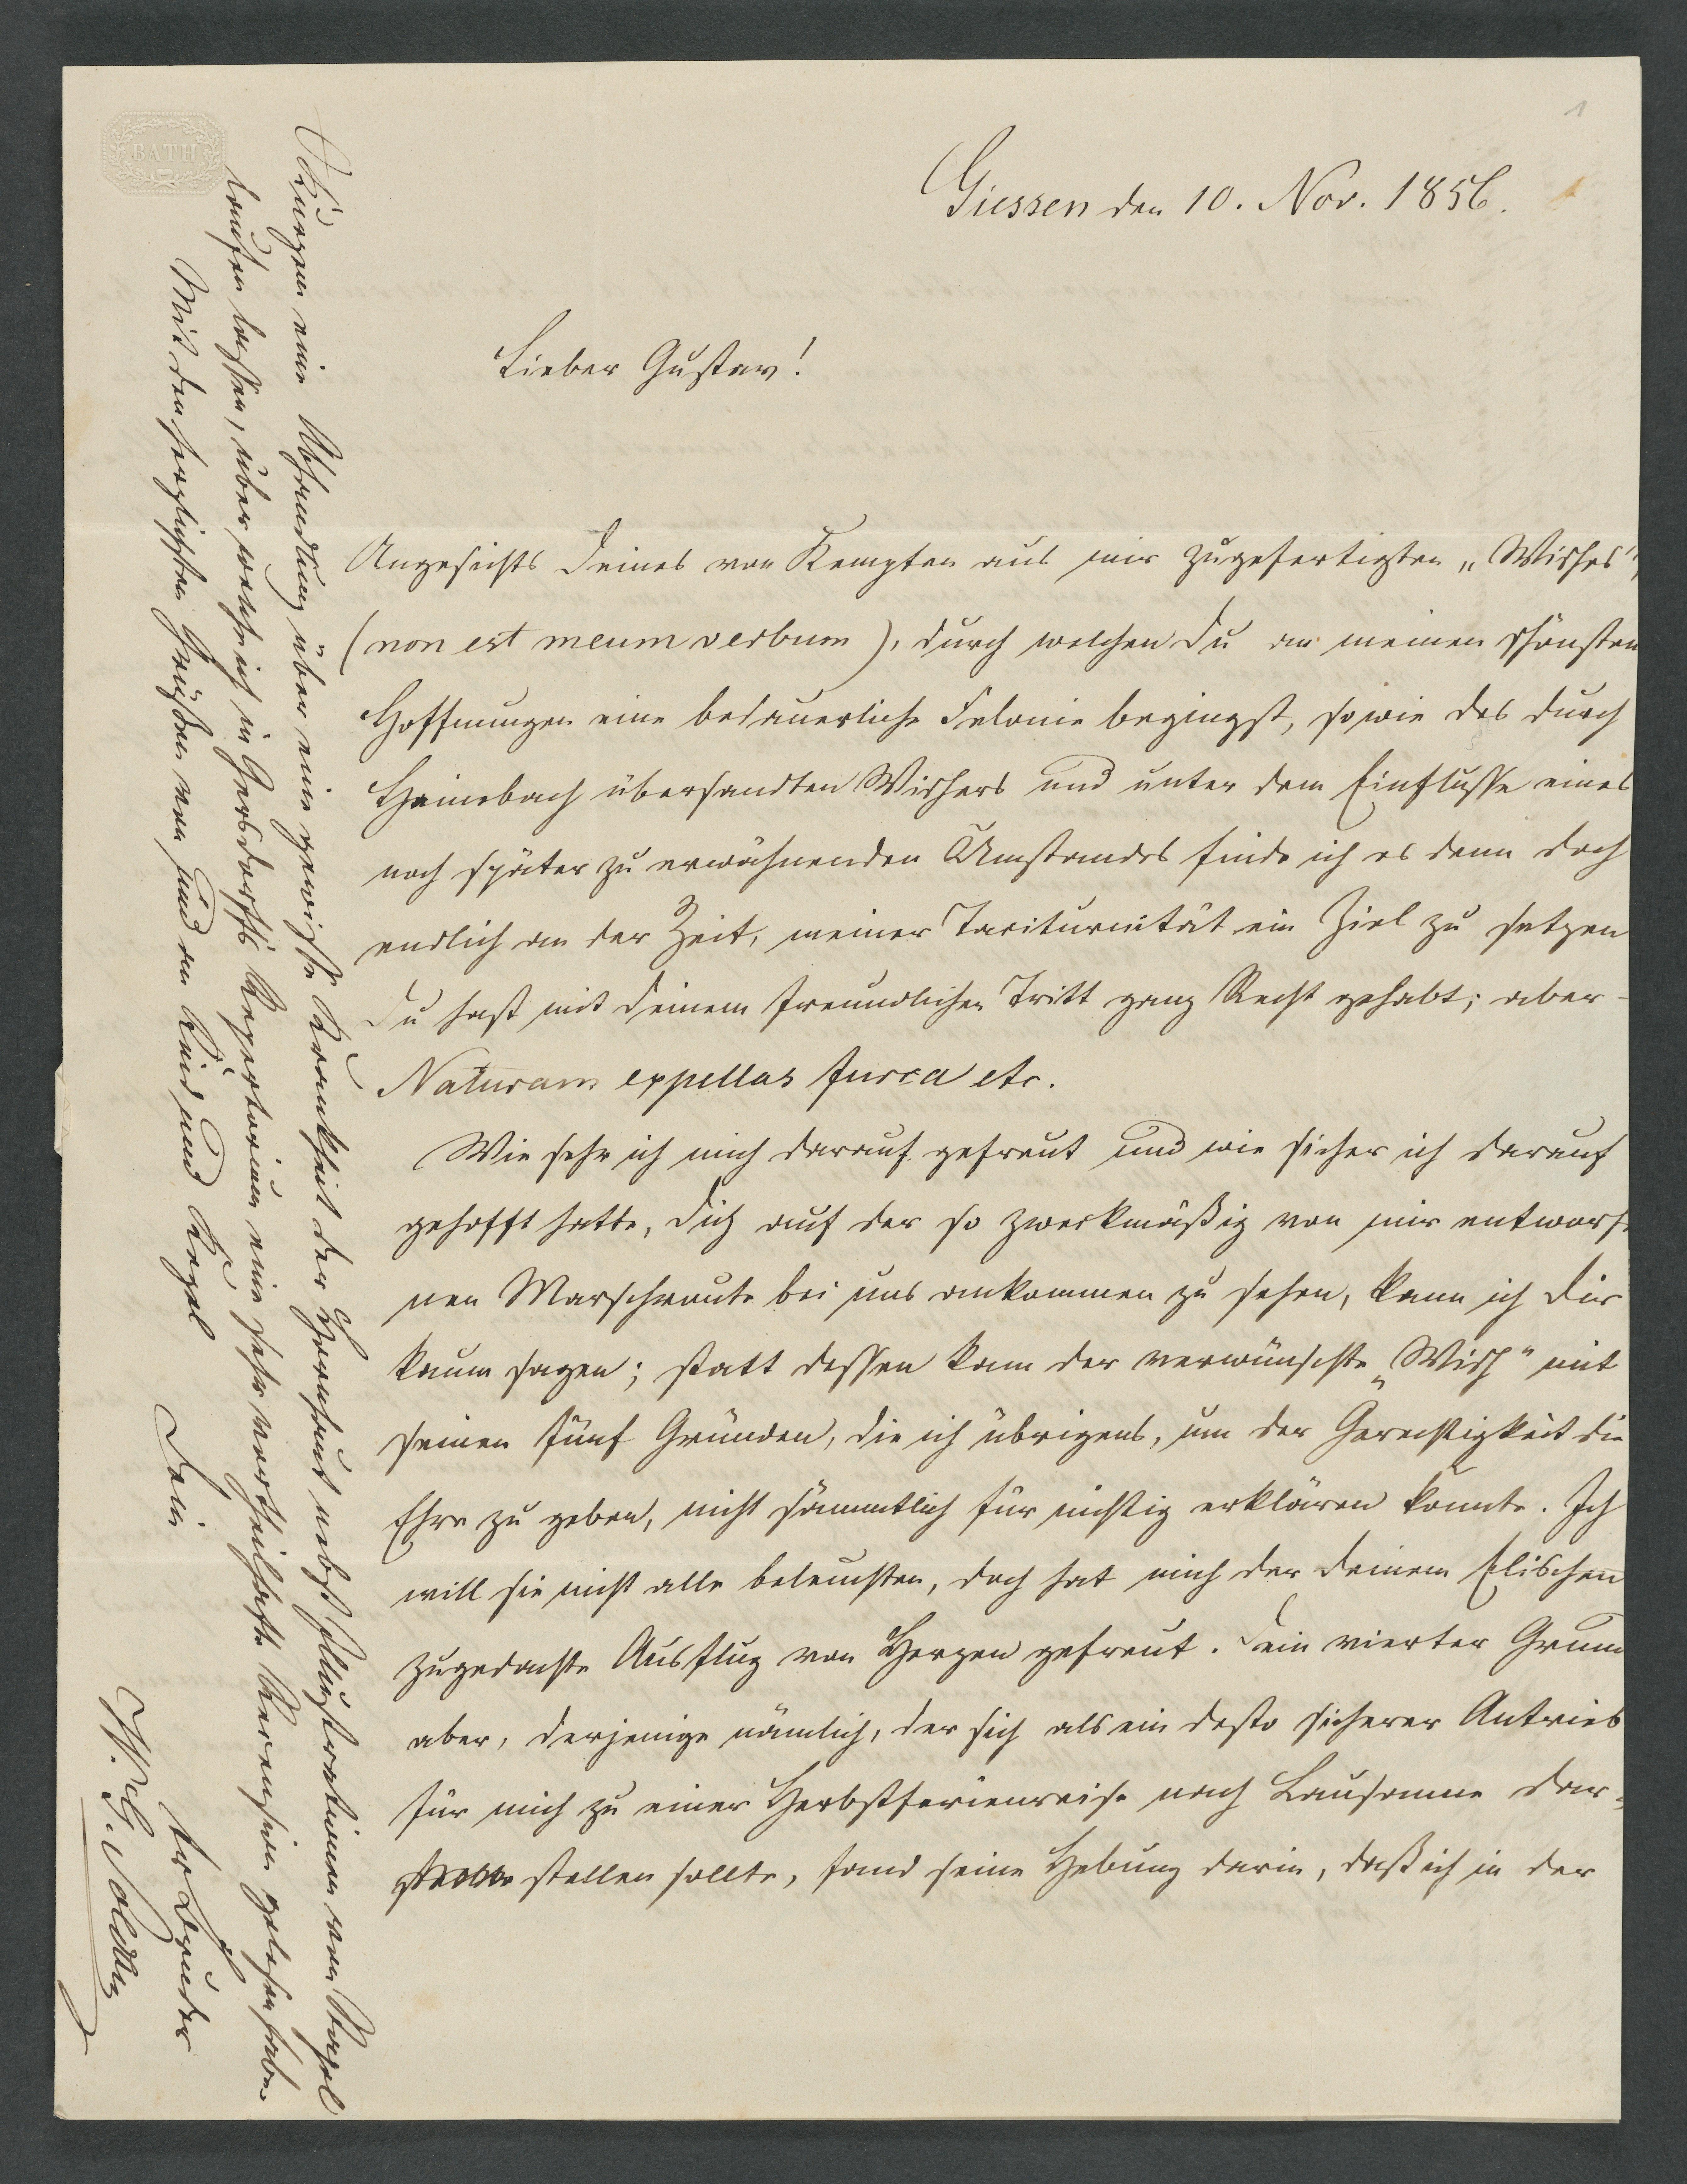 1
BATH
Giessen den 10. Nov. 1856.
Lieber Gustav!
Angesichts Deines von Kempten aus mir zugefertigten „Wisches",
(non est meum verbum), durch welchen Du an meinen schönsten
Hoffnungen eine bedauerliche Felonie begingst, sowie des durch
Heimbach übersandten Wischers und unter dem Einflusse eines
noch später zu erwähnenden Umstandes finde ich es denn doch
endlich an der Zeit, meiner Taciturnität ein Ziel zu setzen
Du hast mit Deinem freundlichen Tritt ganz Recht gehabt; aber -
Naturam expellas furca etc.
Wie sehr ich mich darauf gefreut und wie sicher ich darauf
gehofft hatte, Dich auf der so zweckmäßig von mir entworfe
nen Marschroute bei uns ankommen zu sehen, kann ich Dir
kaum sagen; statt dessen kam der verwünschte „Wisch" mit
seinen fünf Gründen, die ich übrigens, um der Gerechtigkeit die
Ehre zu geben, nicht sämmtlich für nichtig erklären konnte. Ich
will sie nicht alle beleuchten, doch hat mich der Deinem Elischen
zugedachte Ausflug von Herzen gefreut. Dein vierter Grund
aber, derjenige nämlich, der sich als ein desto sicherer Antrieb
für mich zu einer Herbstferienreise nach Lausanne dar-
stellen sollte, fand seine Hebung darin, daß ich in der
Kurzem eine Abhandlung über eine gewisse Krankheit der Hornhaut nebst Illustrationen vom Stapel
laufen lassen, über welche ich in Gersdorffs Repertorium eine sehr vortheilhafte Recension gelesen habe.
Mit den herzlichsten Grüßen von und an Kind und Kegel
Dein
tr. Bruder
W. G. Soldan